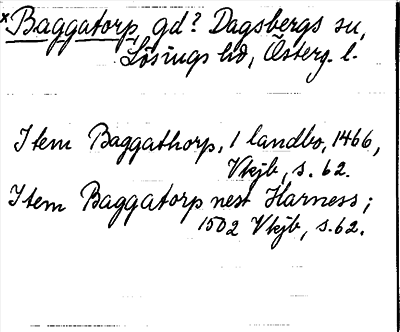 x Baggatorp, gd? Dagsbergs sn,
Lösings hd, Österg. l.
Item Baggathorp, 1 landbo, 1466,
Vkjb, s. 62.
Item Baggatorp nest Harness;
1502 Vkjb, s. 62.